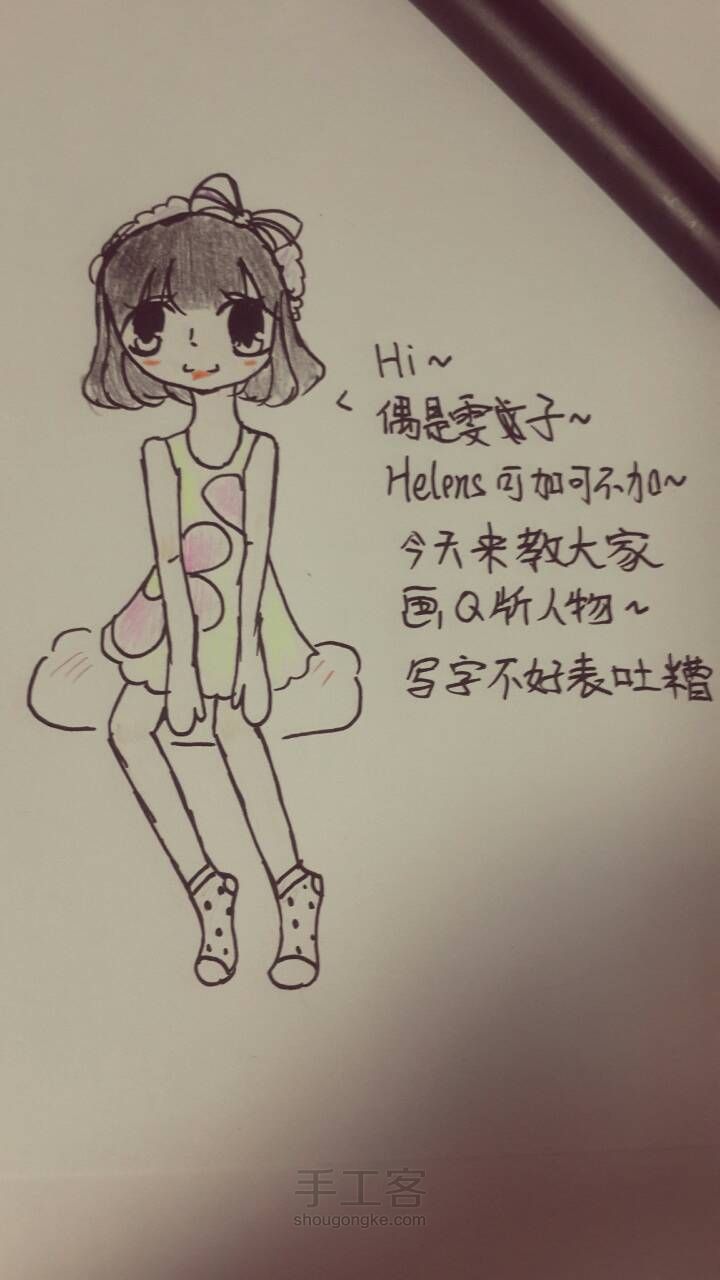 Hi~
偶是雯子~
Helens可加可不加~
今天来教大家
画Q版人物~
写字不好表吐糟
手工客
shougongke.com